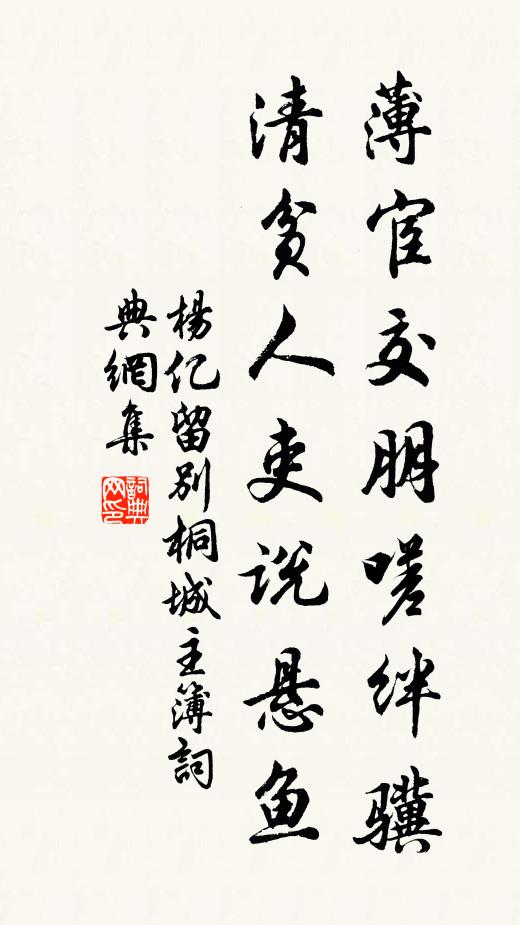 薄宦交朋嗟绊骥
清貧人吏说悬鱼
楊亿留别桐城主簿詞
典網集
詞典网印